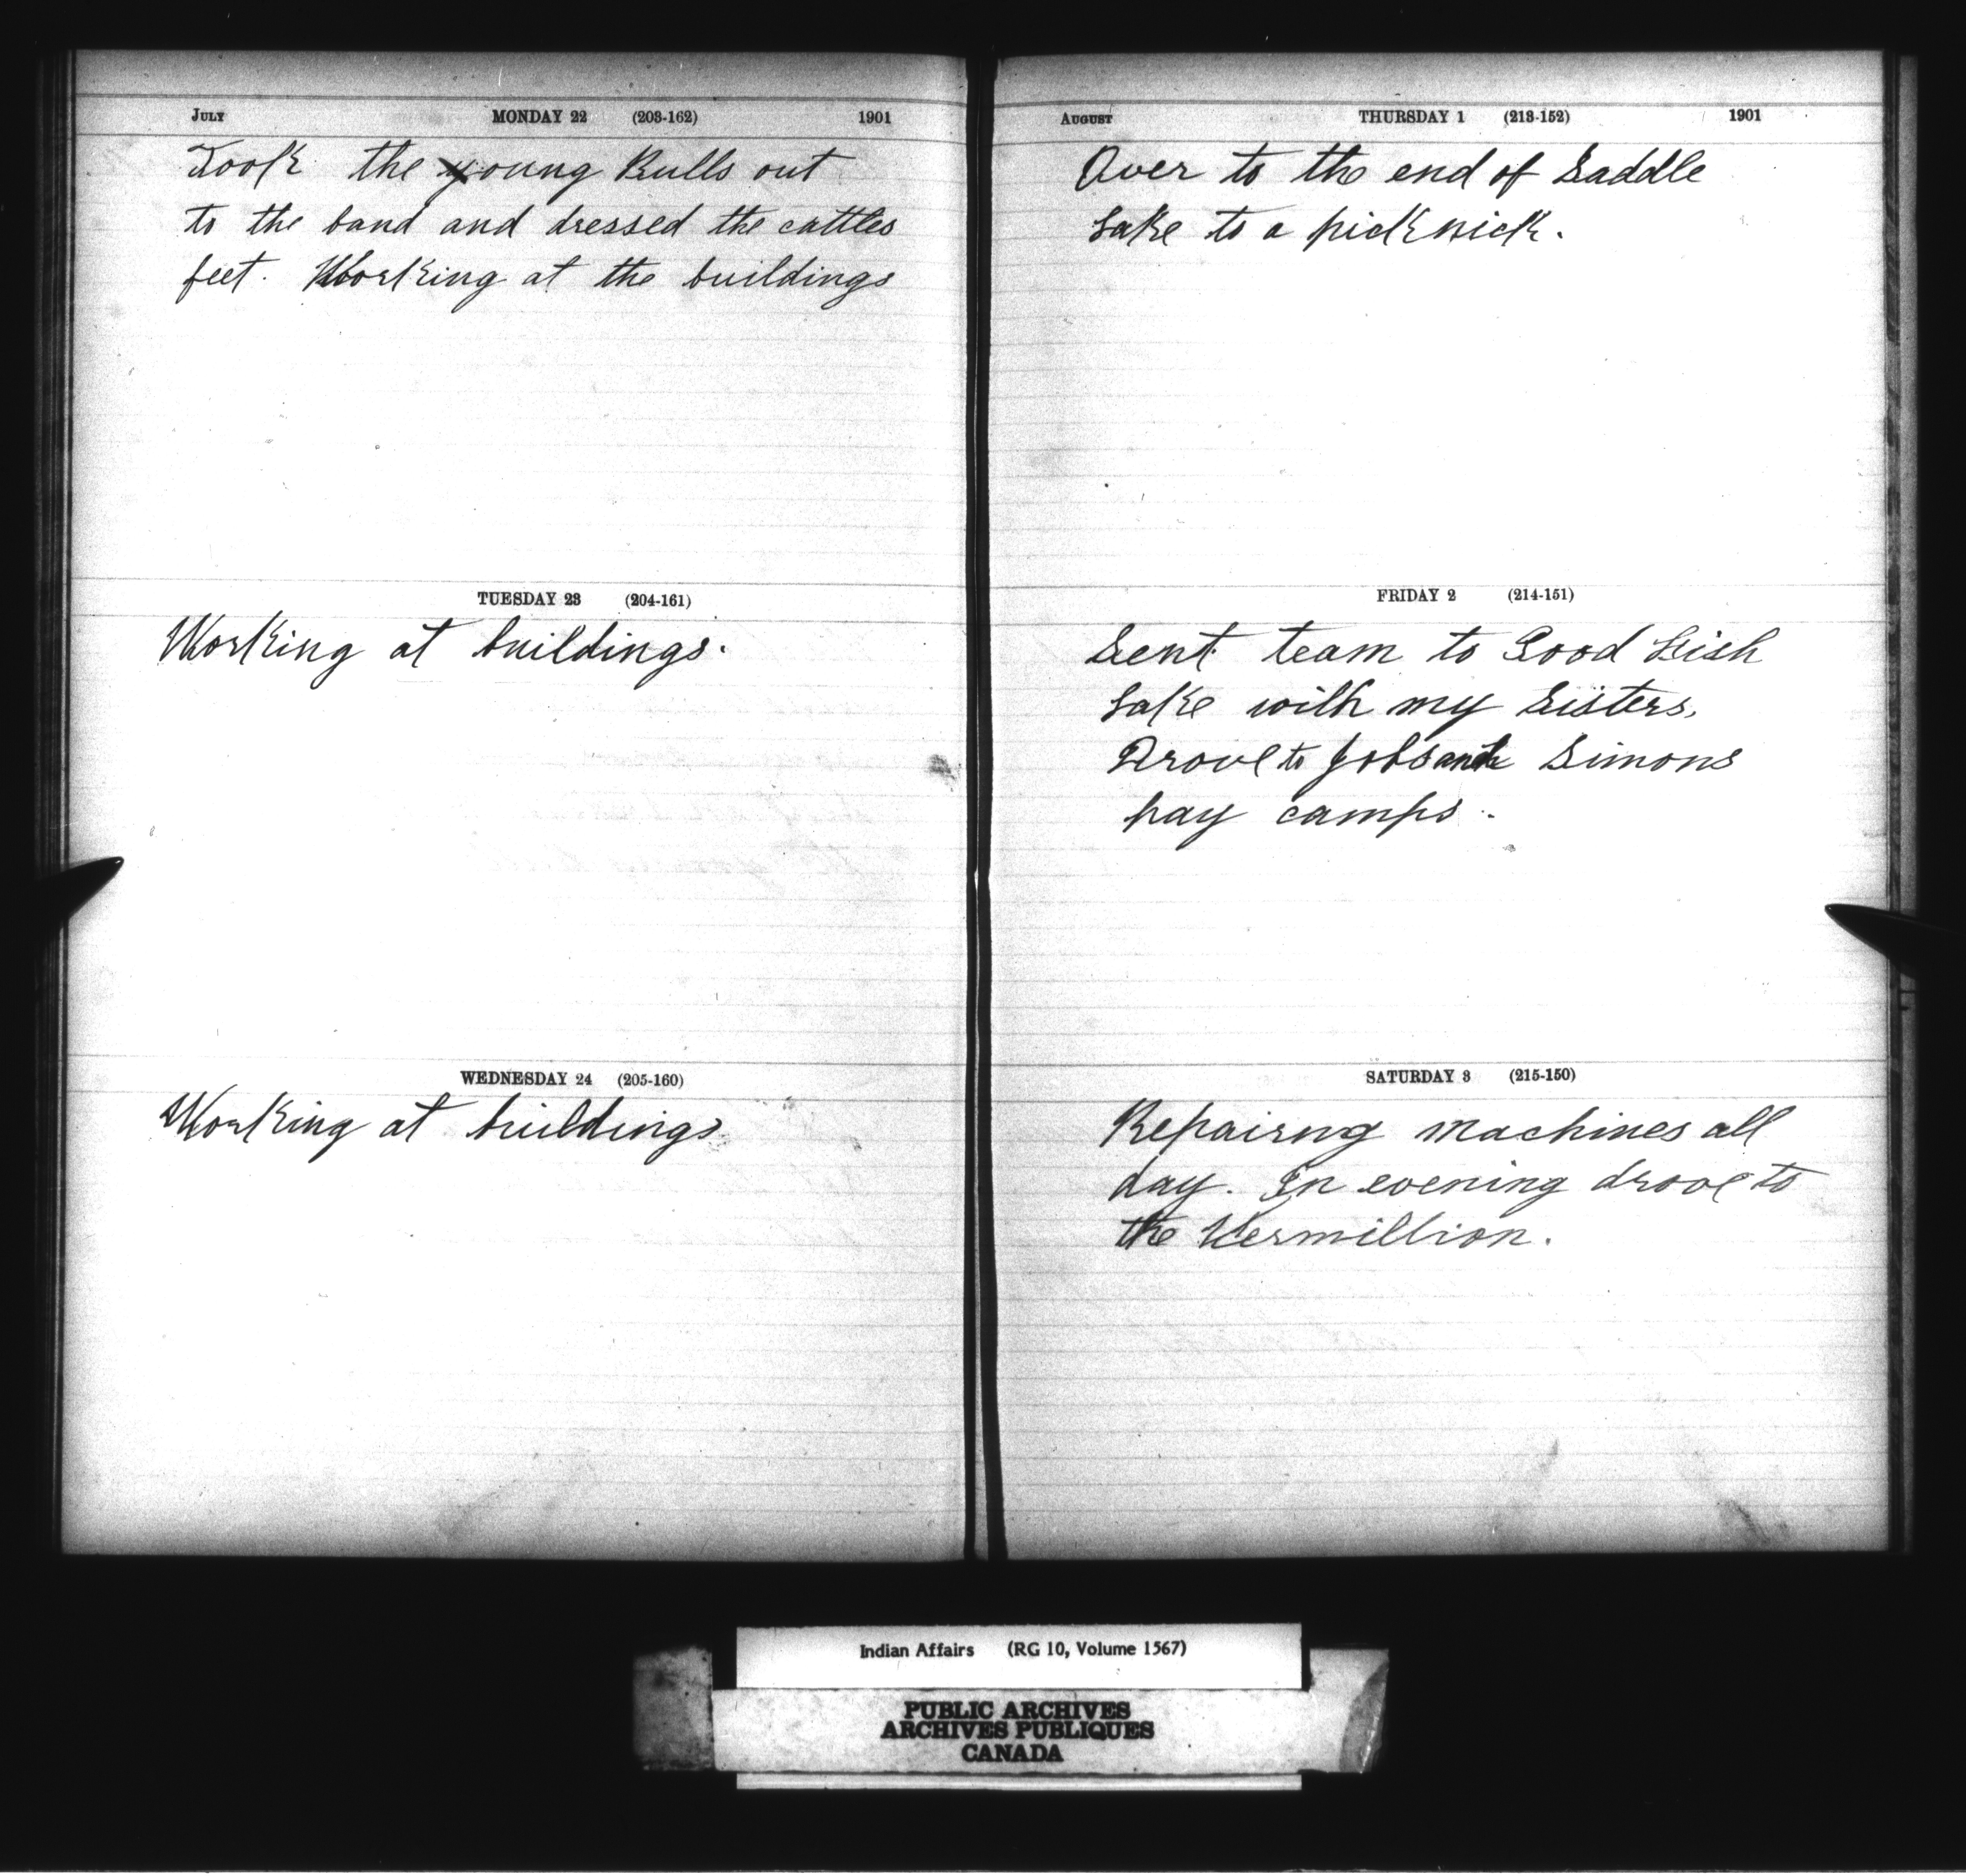 July MONDAY 22 (203-162) 1901
Took the young Bulls out
to the band and dressed the cattles
feet. Working at the buildings
TUESDAY 23 (204-161)
Working at buildings.
WEDNESDAY 24 (205-160)
Working at buildings
August THURSDAY 1 (213-152) 1901
Over to the end of Saddle
Lake to a picknick.
FRIDAY 2 (214-151)
Sent team to Good Fish
Lake with my Sisters.
Drove to Jobs and Simons
hay camps.
SATURDAY 3 (215-150)
Repairng machines all
day. In evening drove to
the Vermillion.
Indian Affairs (RG 10, Volume 1567)
PUBLIC ARCHIVES
ARCHIVES PUBLIQUES
CANADA